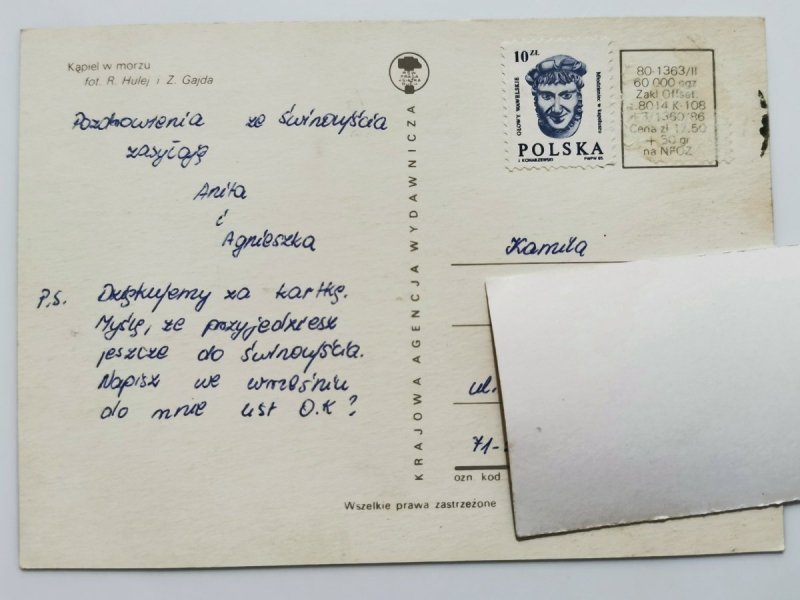 Kąpiel w morzu
fot. R. Hulej i Z. Gajda
Pozdrowienia ze Świnoujścia
zasyłają
Anita
i
Agnieszka
P.S. Dziękujemy za kartkę.
Myślę, że przyjedziesz
jeszcze do Świnoujścia.
Napisz we wrześniu
do mnie list O.K?
KRAJOWA AGENCJA WYDAWNICZA
10 ZŁ
GŁOWY WAWELSKIE
Młodzieniec w
POLSKA
PWPW 85
80-1363/II
60 000 egz
Zakł Offset.
8014 K-108
1360/86
Cena zł 12,50
+ 50 gr
na NFOZ
Kamila
ul.
71-
ozn kod
Wszelkie prawa zastrzeżone